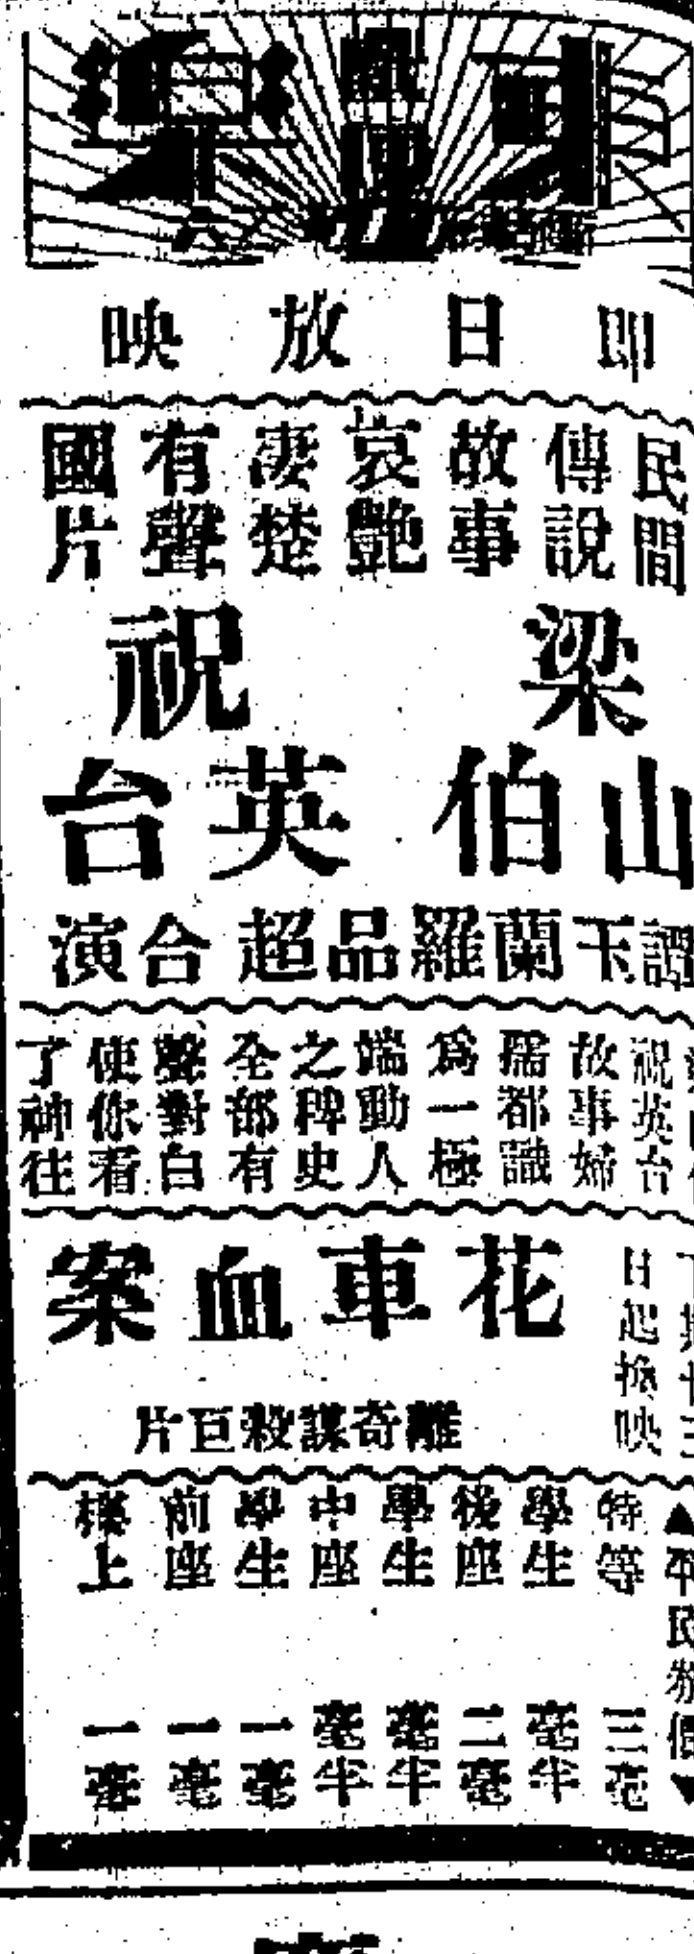 樂
即日放映
民間
傳說
故事
哀艷
凄楚
有聲
國片
梁山伯
祝英台
譚玉蘭 羅品超 合演
祝英台
故事婦
孺都識
爲一極
端動人
之稗史
全部有
聲對白
使你看
了神往
日起換映
花車血案
離奇謀殺巨片
▲平民券價▼
特等 三毫
學生 毫半
後座 二毫
學生 毫半
中座 毫半
學生 一毫
前座 一毫
樓上 一毫